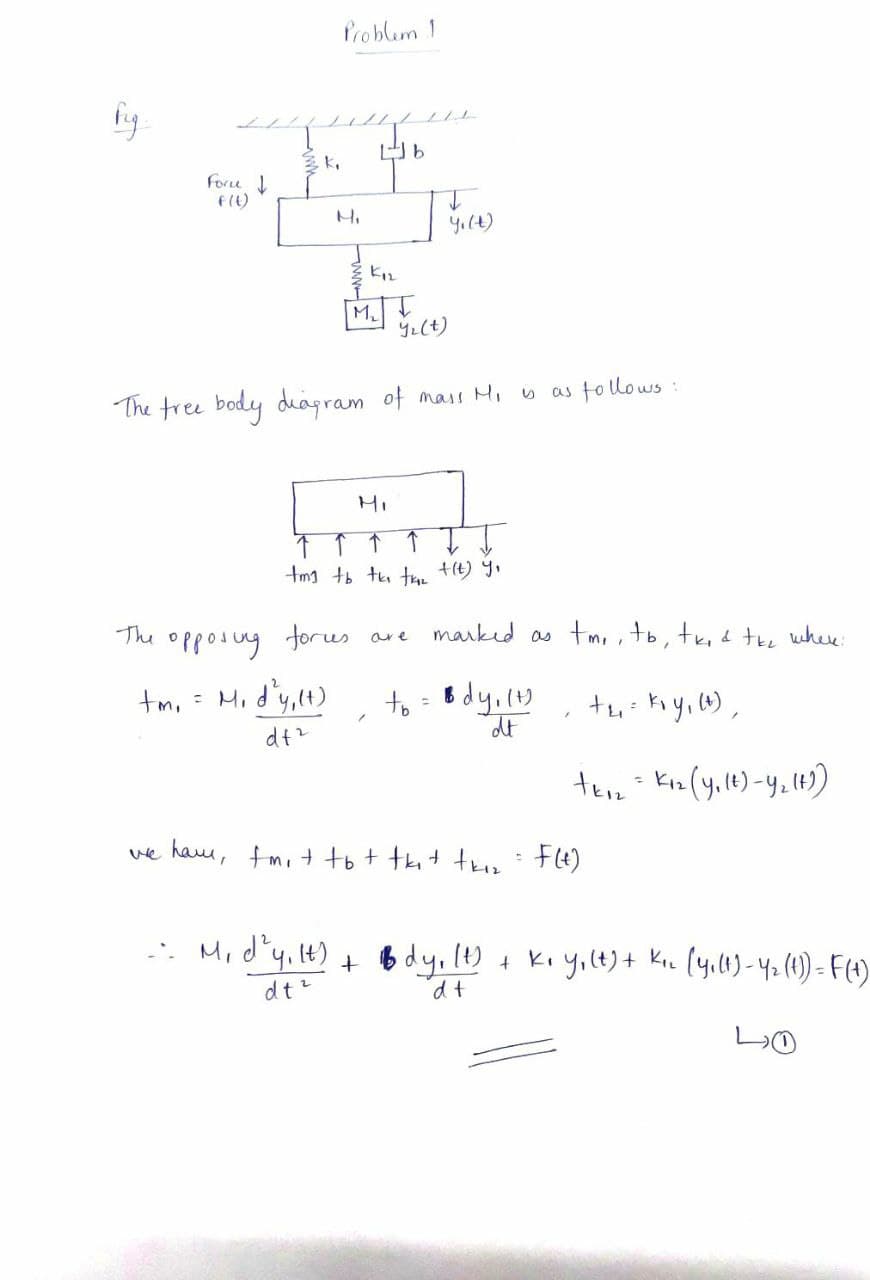 Problem 1
Fig.
K₁
b
Force ↓
F(t)
M₁
y₁(t)
K₁₂
M₂
y₂(t)
The free body diagram of mass M₁ is as follows :
M₁
fm1 fb fk₁ fk₁₂ f(t) y₁
The opposing forces are marked as fm₁, fb, fk₁ & fk₂ where:
fm₁ = M₁ d²y₁(t)/dt² , fb = b dy₁(t)/dt , fk₁ = K₁ y₁(t) ,
fk₁₂ = K₁₂ (y₁(t) - y₂(t))
we have, fm₁ + fb + fk₁ + fk₁₂ = F(t)
∴ M₁ d²y₁(t)/dt² + b dy₁(t)/dt + K₁ y₁(t) + K₁₂ (y₁(t) - y₂(t)) = F(t)
↳ ①